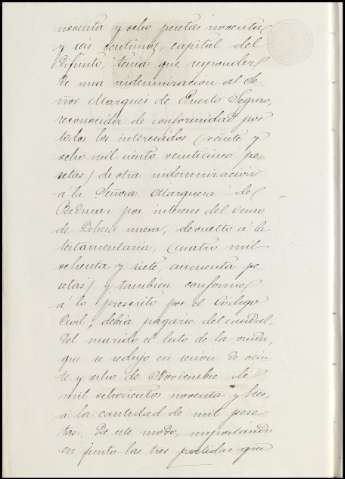 noventa y ocho pesetas noventa
y seis centimos, capital del
Difunto, tenia que responder
de una indemnizacion al Se-
ñor Marques de Puerto Seguro,
reconocida de conformidad por
todos los interesados (veinte y
ocho mil ciento veinticinco pe-
setas) de otra indemnizacion
a la Señora Marquesa de
Bedmar por intereses del censo
de devuelto a la
testamentaria, (cuatro mil
ochenta y siete, pe-
setas) y tambien conforme
a lo prescrito por el Codigo
Civil, debia pagarse del caudal
del marido el luto de la viuda,
que se redujo en union de vein-
te y ocho de Noviembre de
mil ochocientos noventa y tres,
a la cantidad de mil pese-
tas. De este modo, importando
en junto las tres partidas que